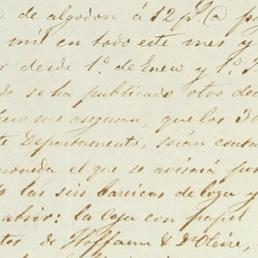 de algodon á 12 p.s @ po
mil en todo este mes y
r desde 1.º de Enero y 1.º
do se ha publicado otro dec
me aseguran, que los 30
te Departamento, serán conta
moneda el que se avisará por
las seis barricas de loza y
abrir: la Caja con papel
tos de Hoffann &